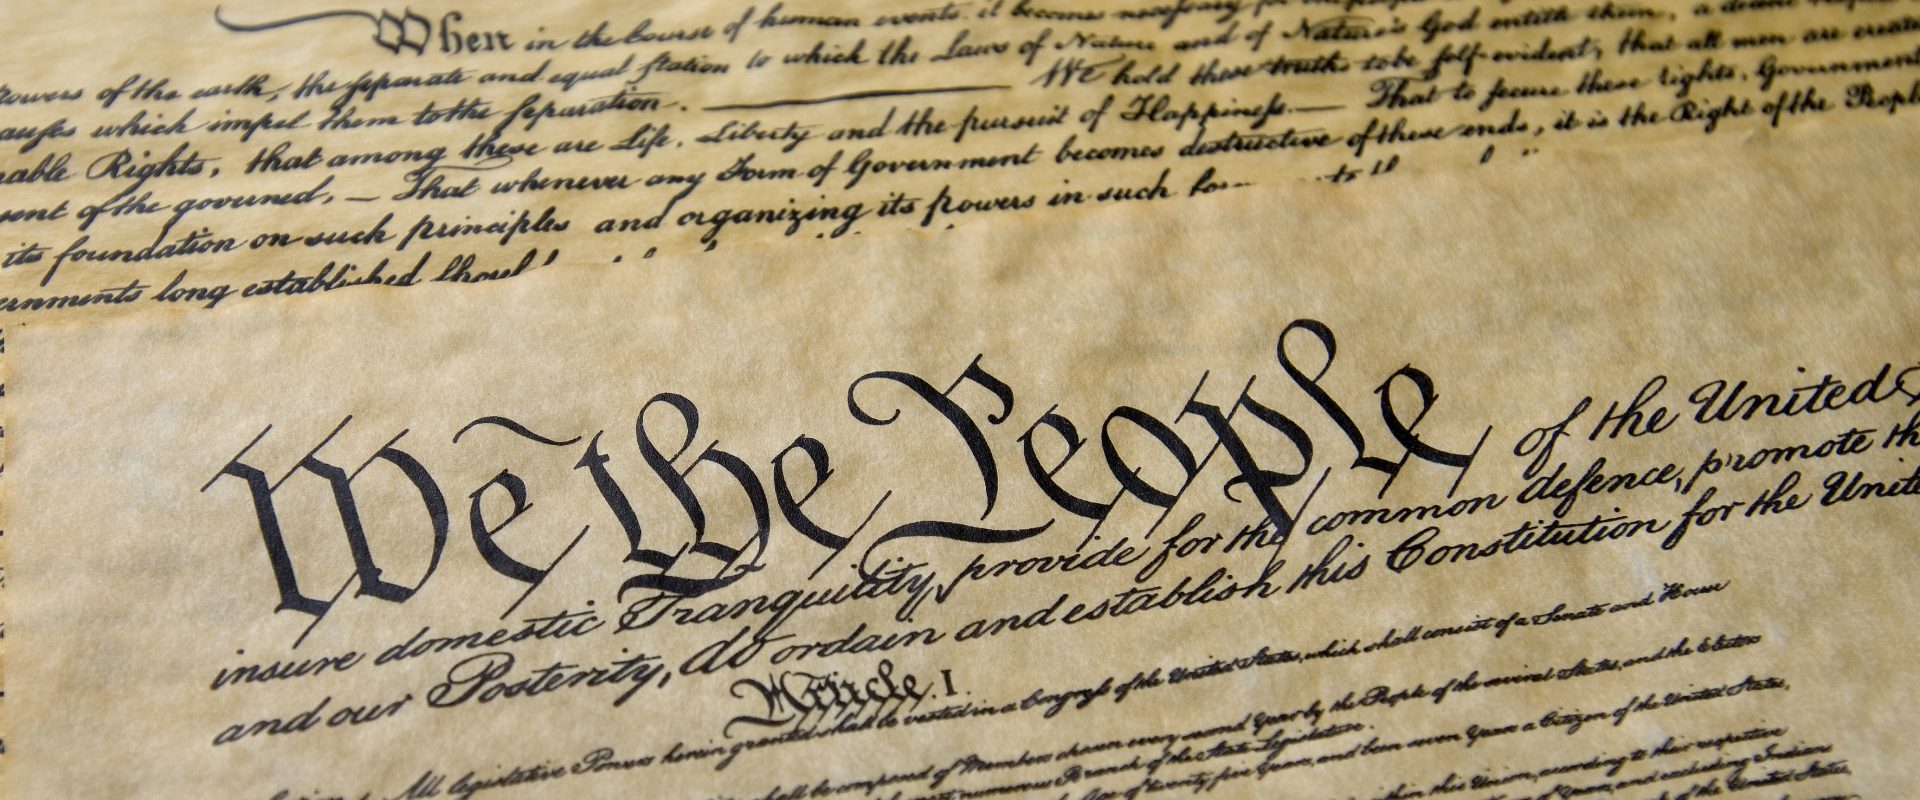 When in the Course of human events, it becomes necessary for
Powers of the earth, the separate and equal station to which the Laws of Nature and of Nature's God entitle them, a decent
causes which impel them to the separation. We hold these truths to be self-evident, that all men are created
Rights, that among these are Life, Liberty and the pursuit of Happiness.— That to secure these rights, Governments
of the governed, — That whenever any Form of Government becomes destructive of these ends, it is the Right of the People
its foundation on such principles and organizing its powers in such
long established
We the People of the United
insure domestic Tranquility, provide for the common defence, promote the
and our Posterity, do ordain and establish this Constitution for the United
Article. I.
All legislative Powers herein granted shall be vested in a Congress of the United States, which shall consist of a Senate and House
shall be composed of Members chosen every second Year by the People of the several States, and the Electors
numerous Branch of the State Legislature.
Age of twenty five Years, and been seven Years a Citizen of the United States,
within this Union, according to their respective
of Years, and excluding Indians
of the United States,